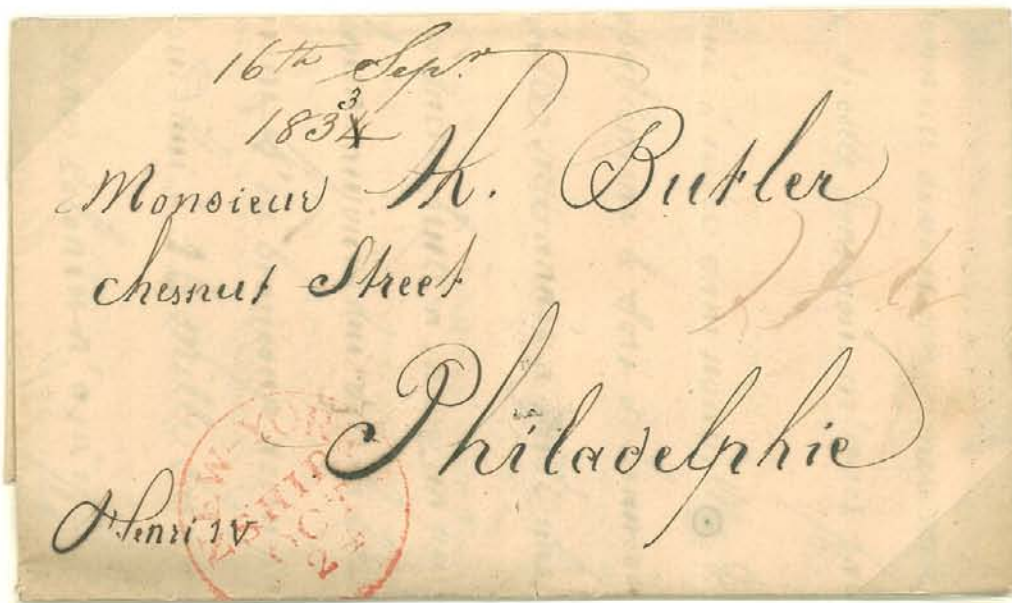 16th Sepr
3
1834
Monsieur Th. Butler
chesnut Street
Philadelphie
Henri IV
NEW-YORK
SHIP
OCT
24